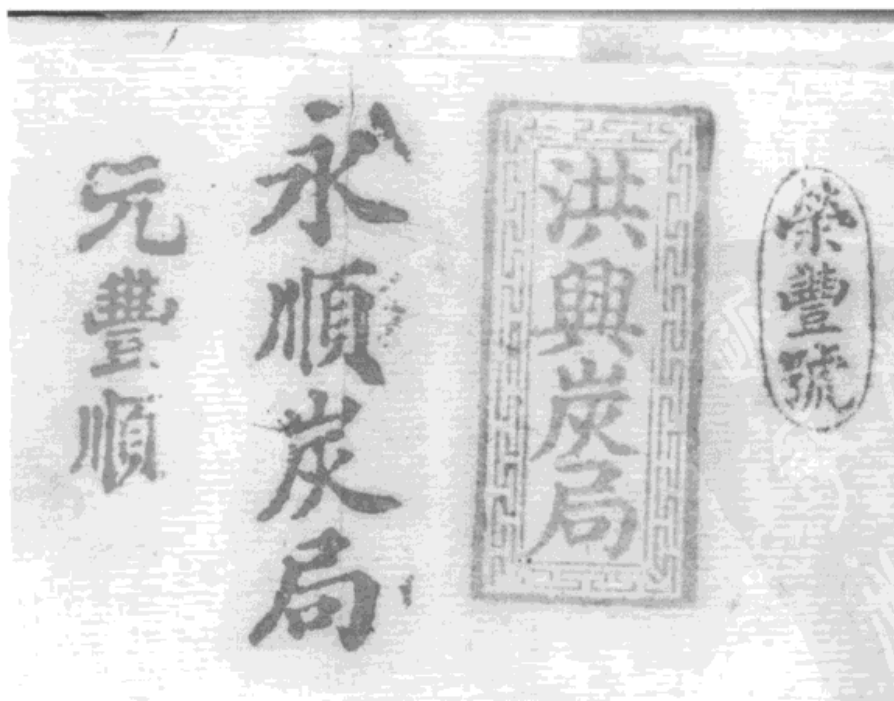 榮豐號
洪興炭局
永順炭局
元豐順